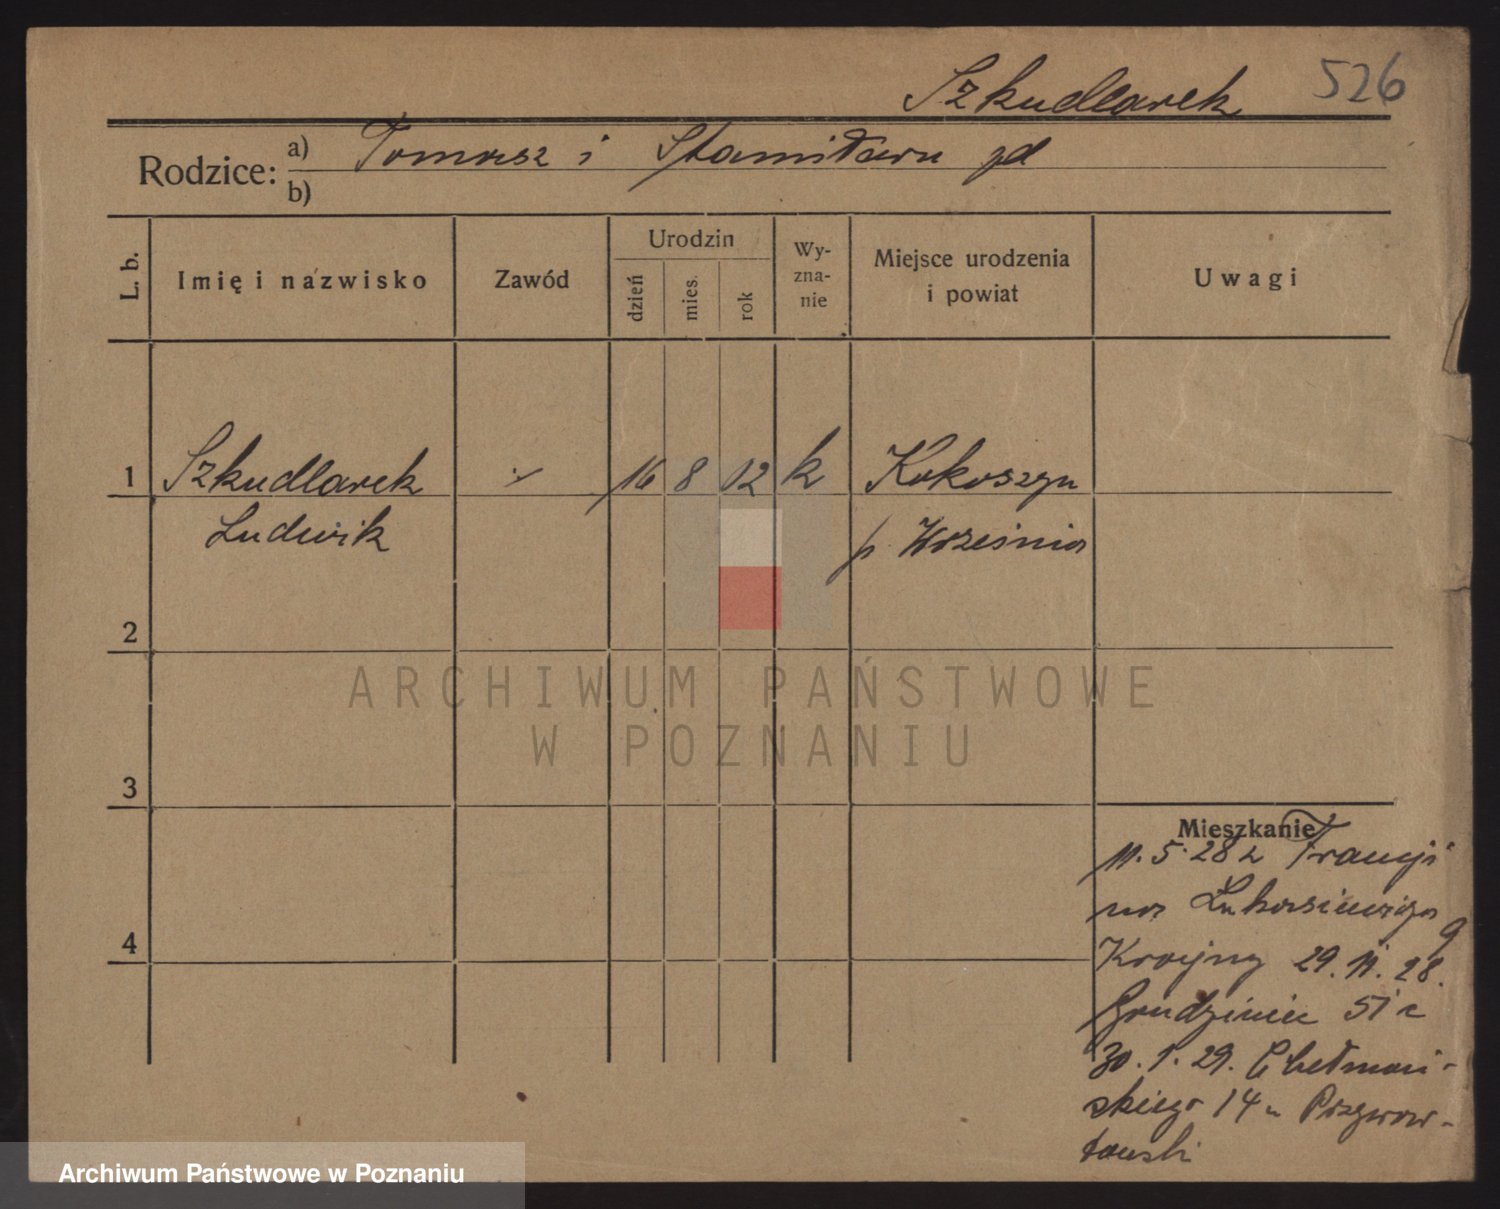 Szkudlarek 526
Rodzice: a) Tomasz i Stanisława
b)
L. b. Imię i nazwisko Zawód Urodzin dzień mies. rok Wy-zna-nie Miejsce urodzenia i powiat Uwagi
1 Szkudlarek 16 8 12 k Kokoszyn
Ludwik p. Września
2
3
4
Mieszkanie
11. 5. 28 z Francji
na Łukasiewicza 9
Krajny 29. 11. 28.
Grudzieniec 51
30. 1. 29. Chełmoń-
skiego 14
ARCHIWUM PAŃSTWOWE
W POZNANIU
Archiwum Państwowe w Poznaniu